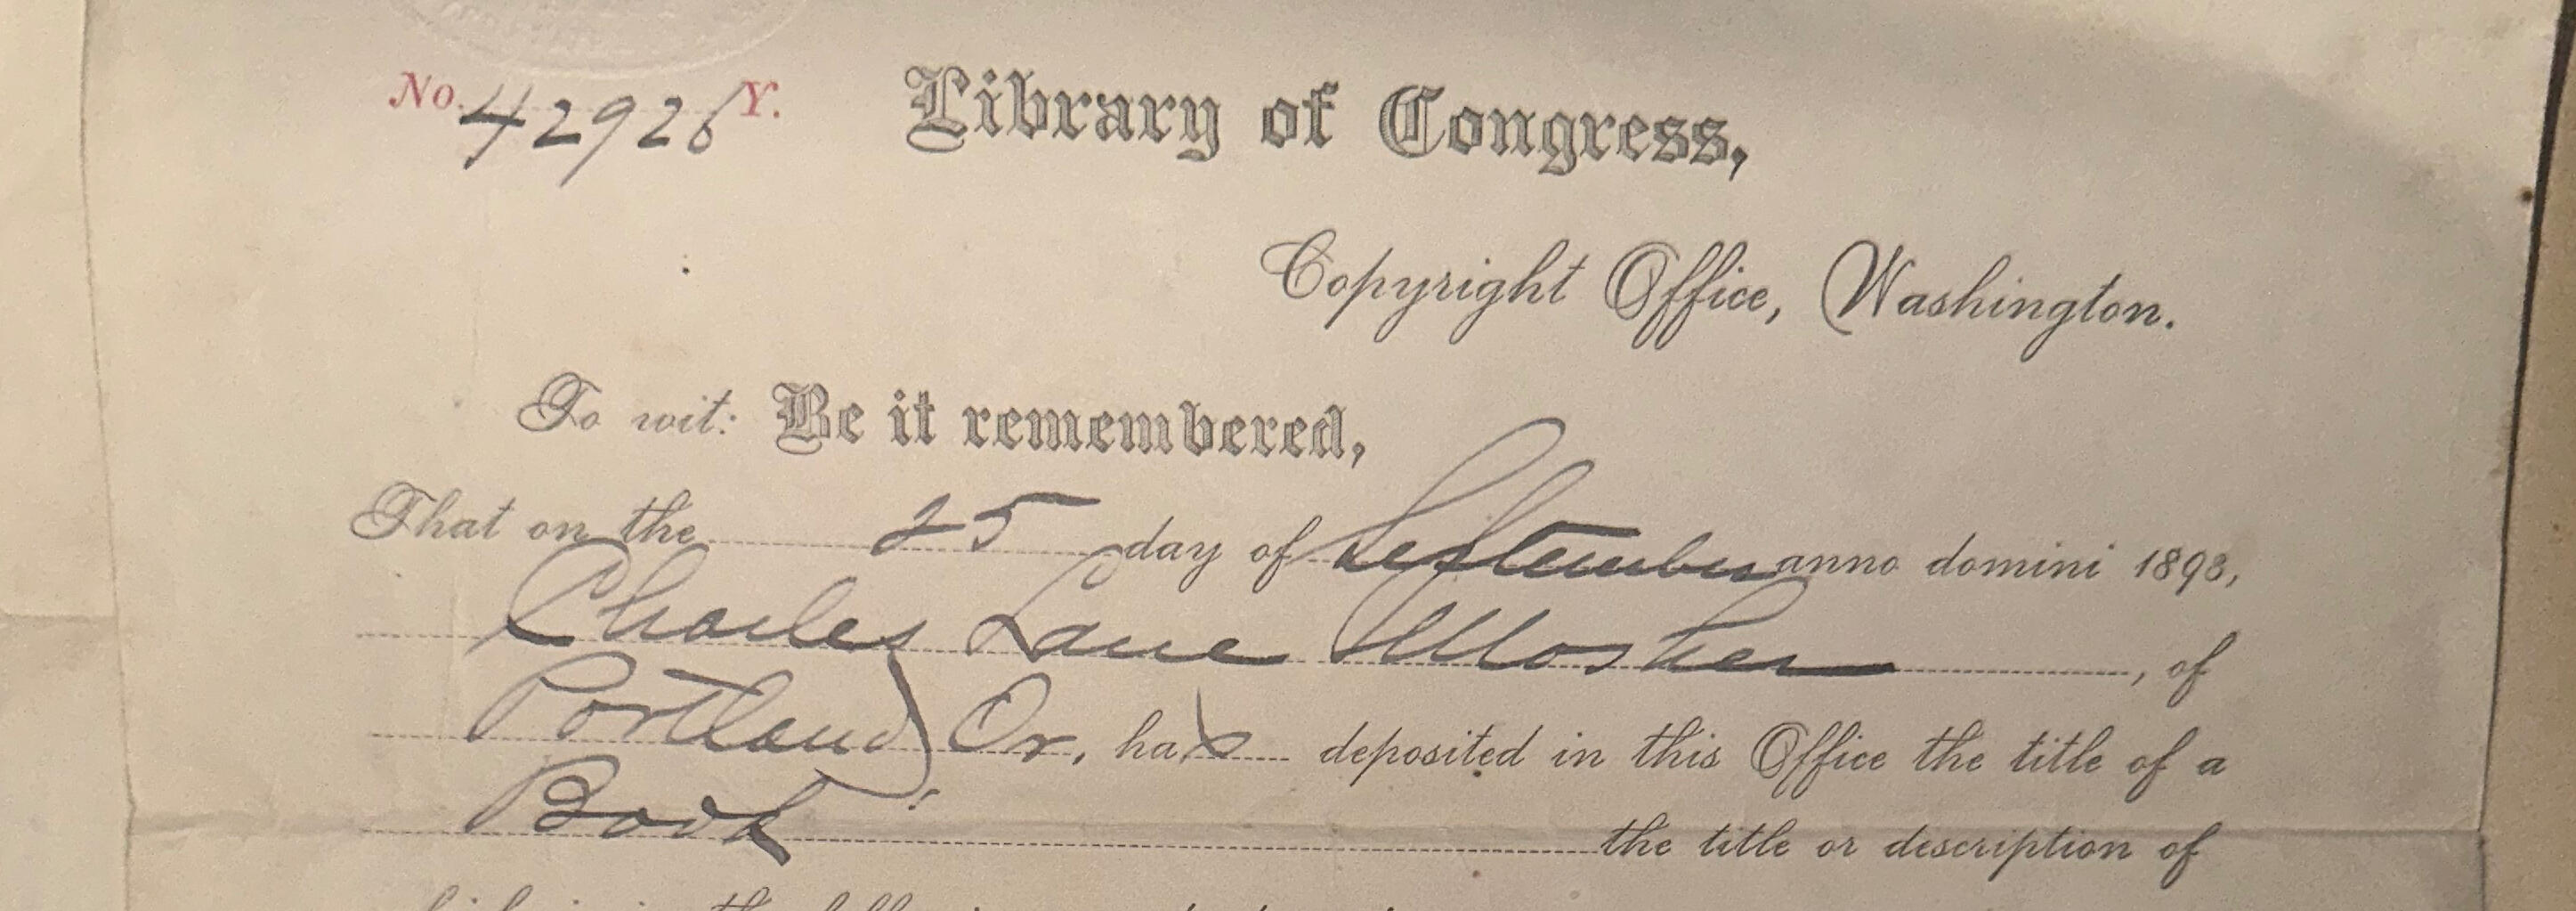 No. 42926 Y. Library of Congress,
Copyright Office, Washington.
To wit: Be it remembered,
That on the 25 day of September anno domini 1893,
Charles Lane Mosher, of
Portland, Or, has deposited in this Office the title of a
Book the title or description of